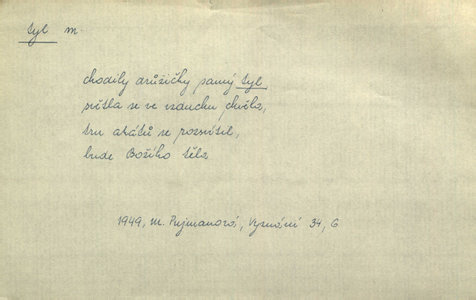 tyl m.
chodily družičky samý tyl,
světla se ve vzduchu chvěla,
trn akátů se rozsvítil,
bude Božího těla
1949, M. Pujmanová, Vyznání 34, G